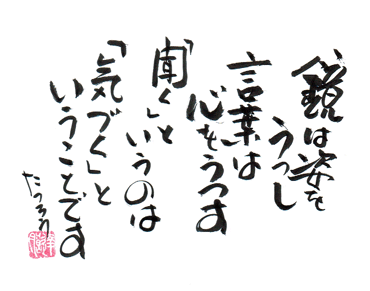 鏡は姿を
うつし
言葉は
心をうつす
「聞く」と
いうのは
「気づく」と
いうことです
たつろう